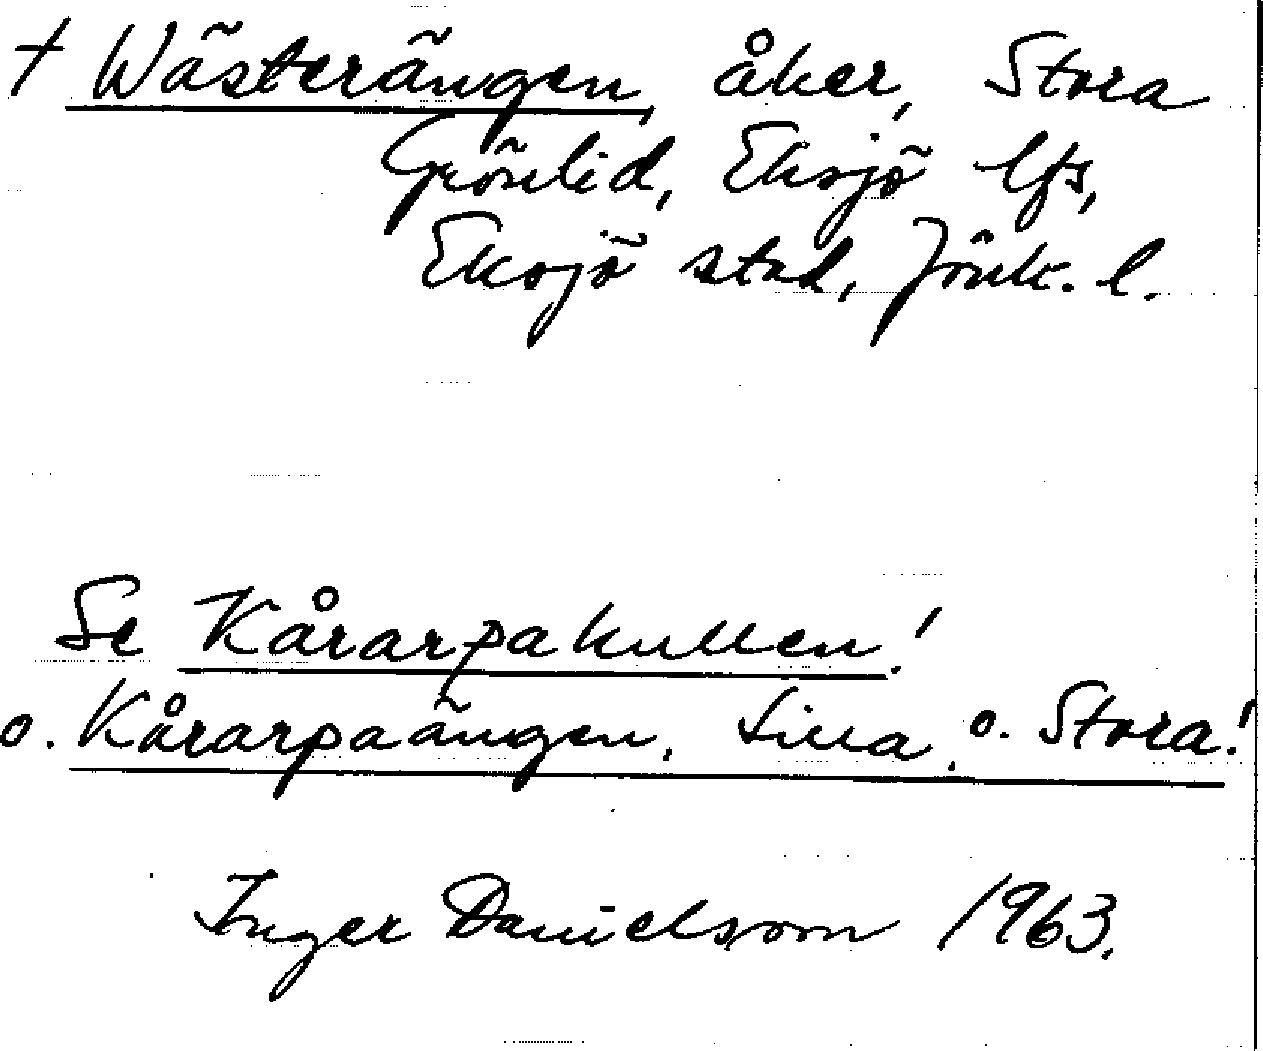 † Wästerängen, åker, Stora
Grönlid, Eksjö lfs,
Eksjö stad, Jönk. l.
Se Kårarpakullen!
o. Kårarpaängen, Lilla o. Stora!
Inger Danielsson 1963.